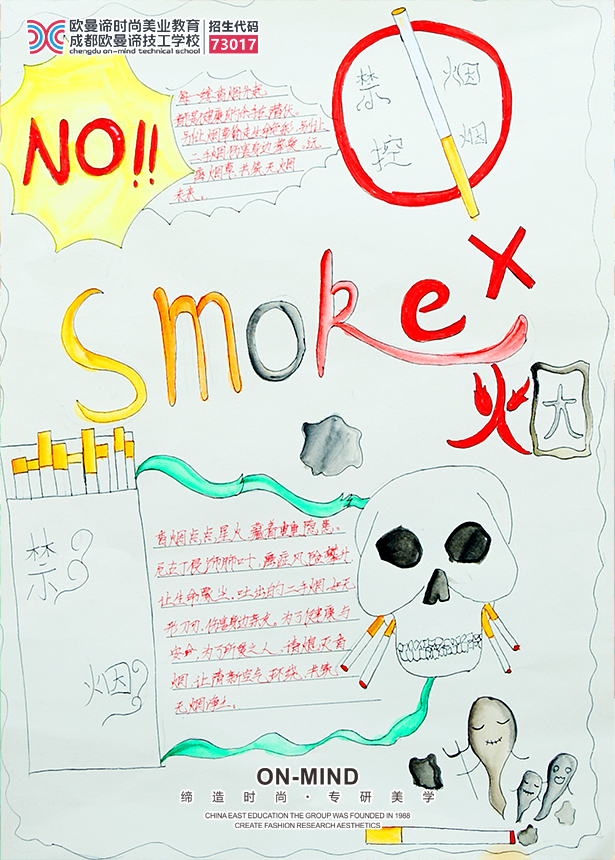 欧曼谛时尚美业教育
成都欧曼谛技工学校
chengdu on-mind technical school
招生代码
73017
NO!!
每一缕香烟升起，
都是健康
别让烟草偷走生命 别让
二手烟伤害身边 远
离烟草，共 无烟
未来。
禁 烟
控 烟
Smoke
×
烟
禁
烟
香烟点点星火，藏着 隐患。
尼古丁侵 肺叶， 症风险攀升
让生命蒙尘，吐出的二手烟，如无
形刀刃，伤害身边亲友。为了健康与
安全，为了所爱之人，请熄灭香
烟，让清新空气环绕，共
无烟净土。
ON-MIND
缔造时尚·专研美学
CHINA EAST EDUCATION THE GROUP WAS FOUNDED IN 1988
CREATE FASHION RESEARCH AESTHETICS